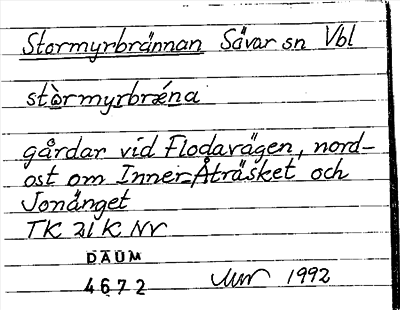 Stormyrbrännan Sävar sn Vbl
stòrmyrbrǽna
gårdar vid Flodavägen, nord-
ost om Inner-Åträsket och
Jonänget
TK 21 K NV
DAUM
4672 1992